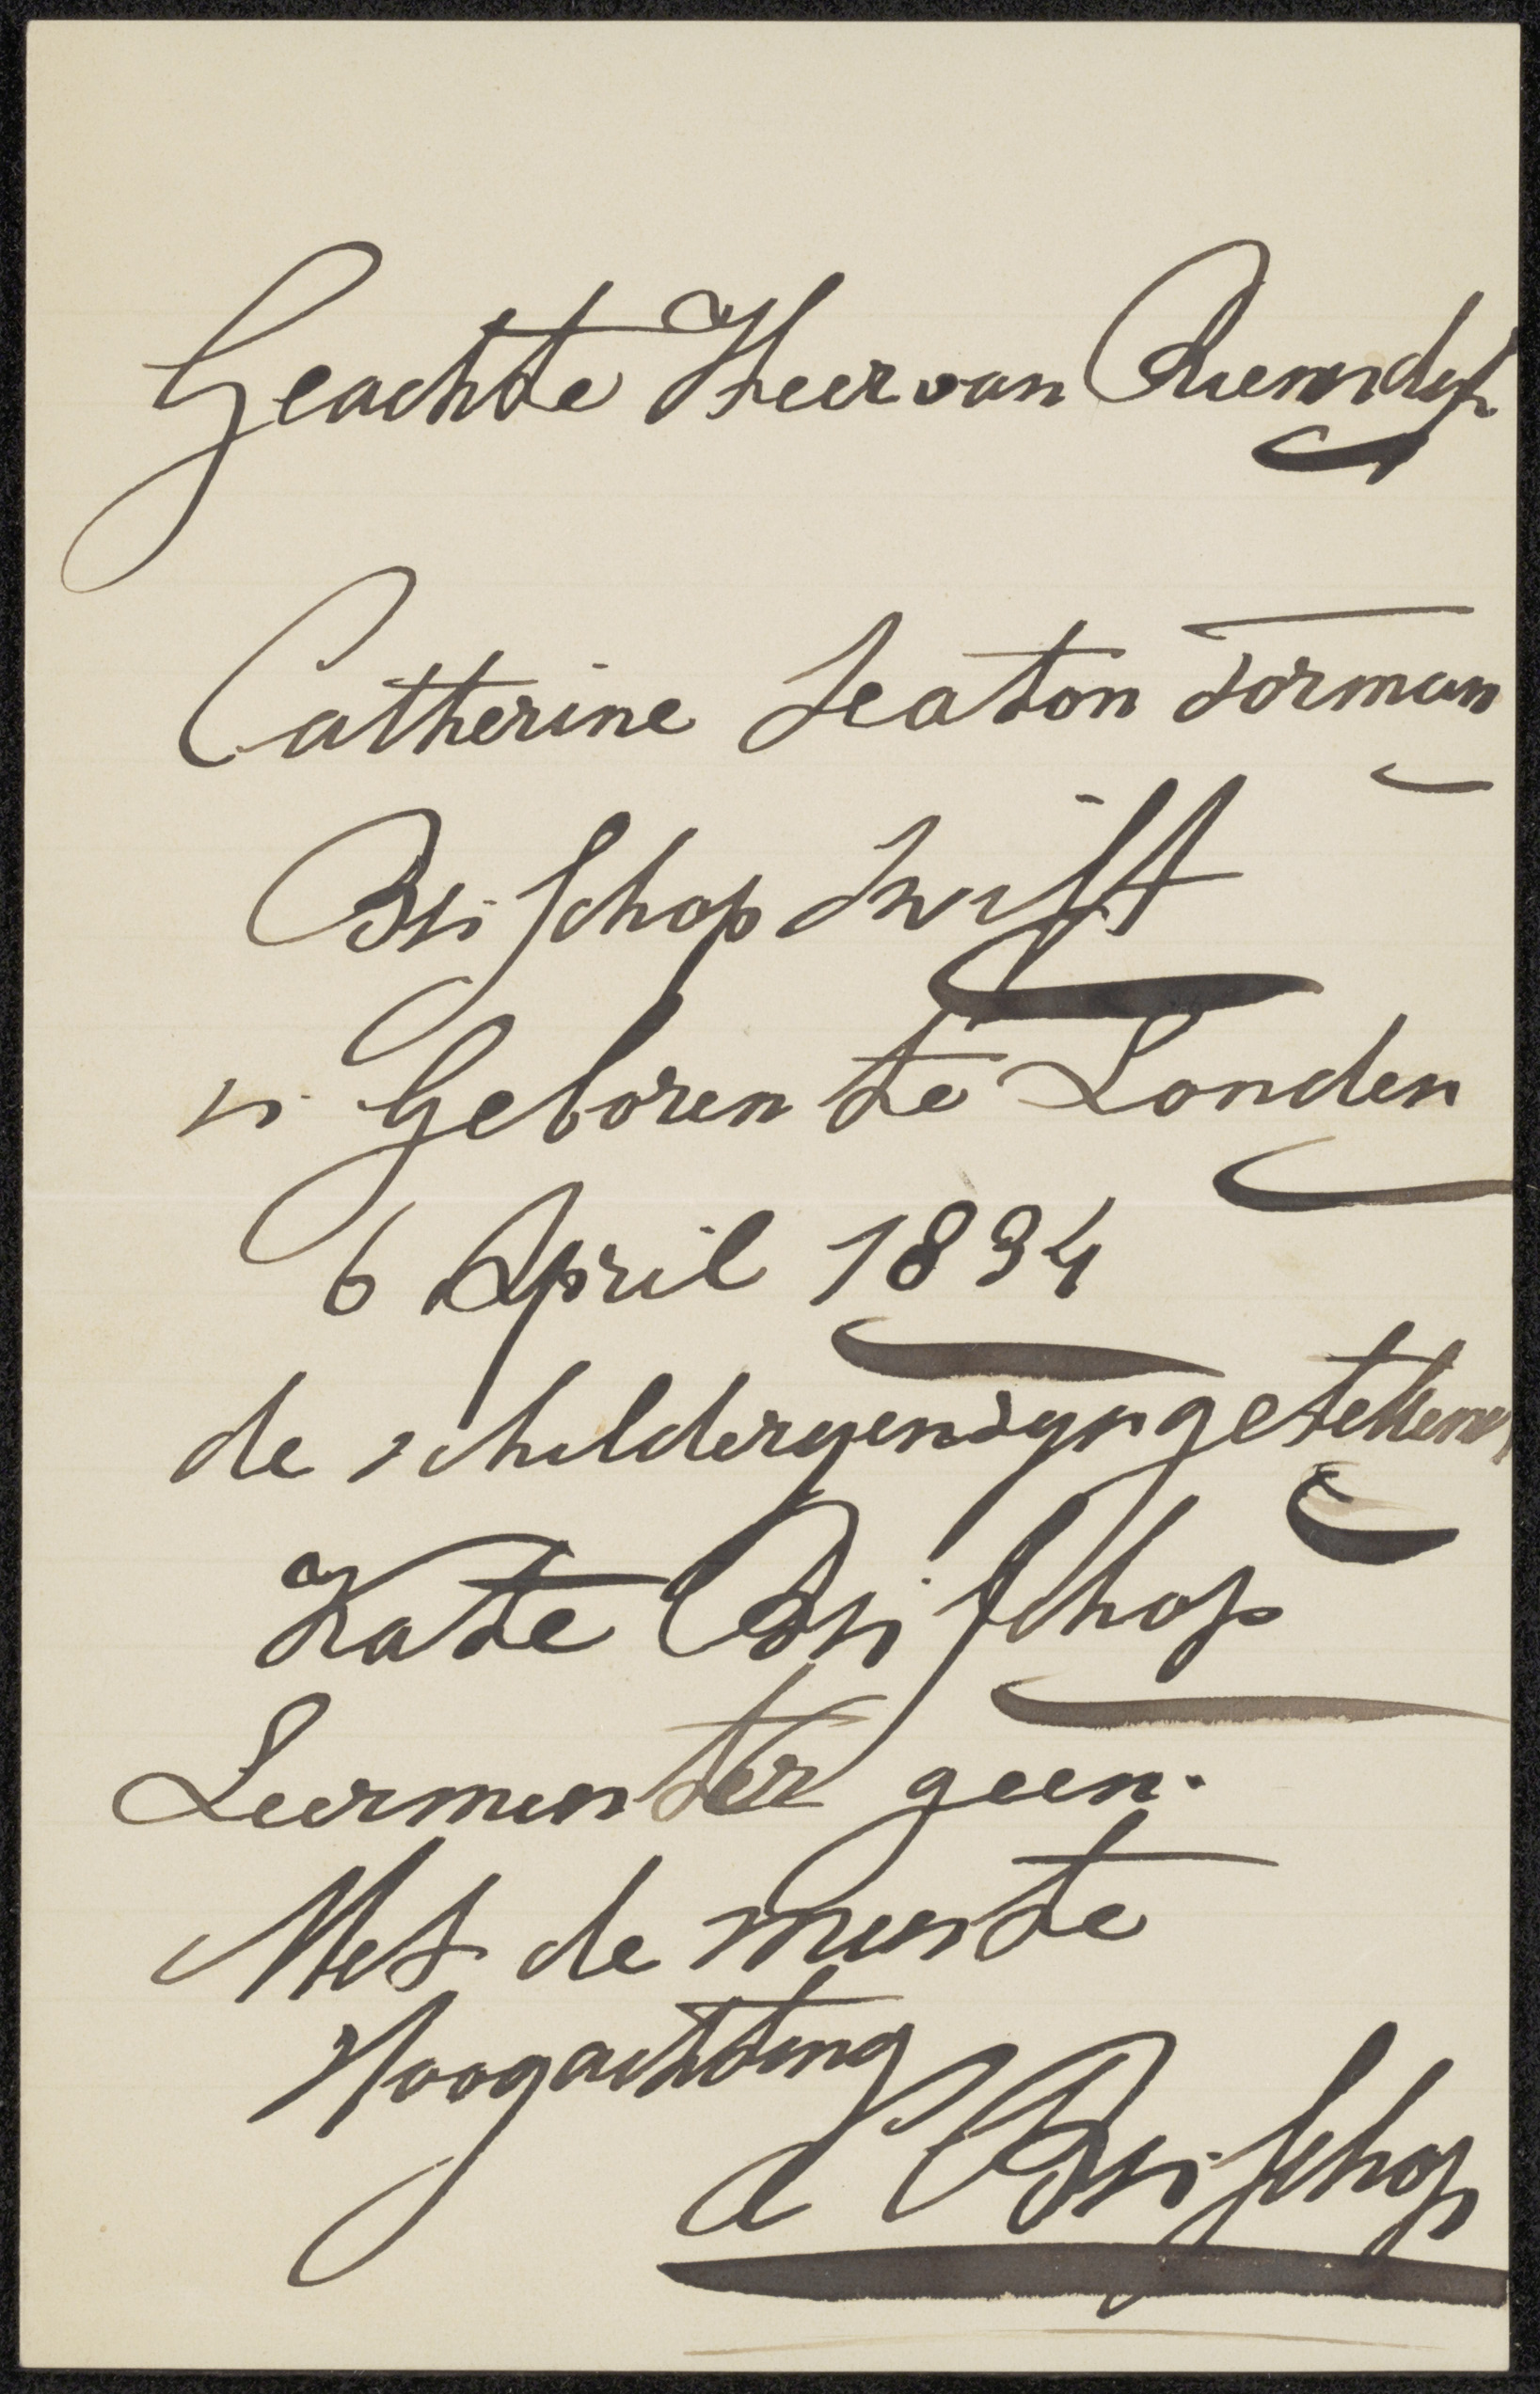 Geachte Heer van Riemsdijk
Catherine Seaton Forman
Bisschop Swift
is Geboren te Londen
6 April 1834
de schilderyen zyn getekend
Kate Bisschop
Leermeester geen.
Met de meeste
Hoogachting
C Bisschop